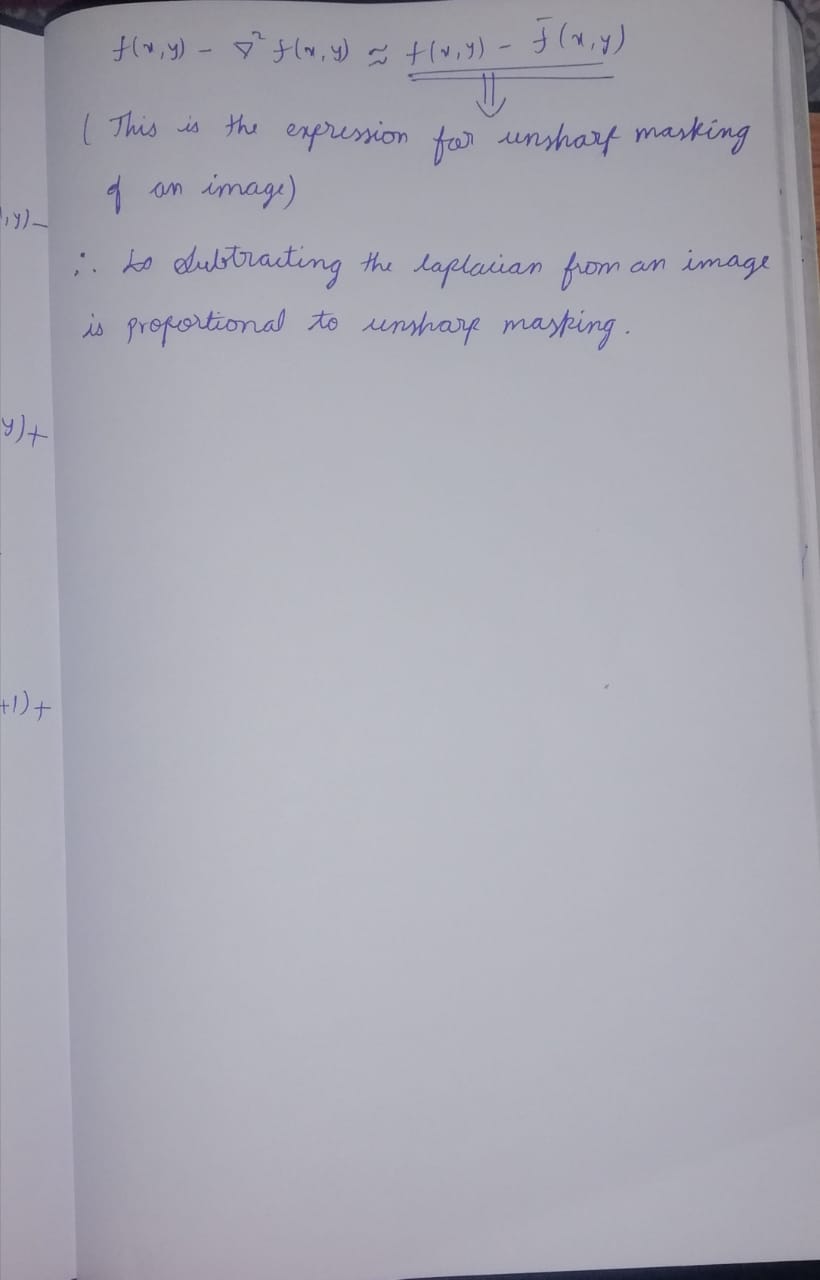 f(x,y) - ∇² f(x,y) ≈ f(x,y) - f̄(x,y)
⇓
( This is the expression for unsharp masking
of an image)
,y) -
∴ so subtracting the laplacian from an image
is proportional to unsharp masking.
y) +
+1) +